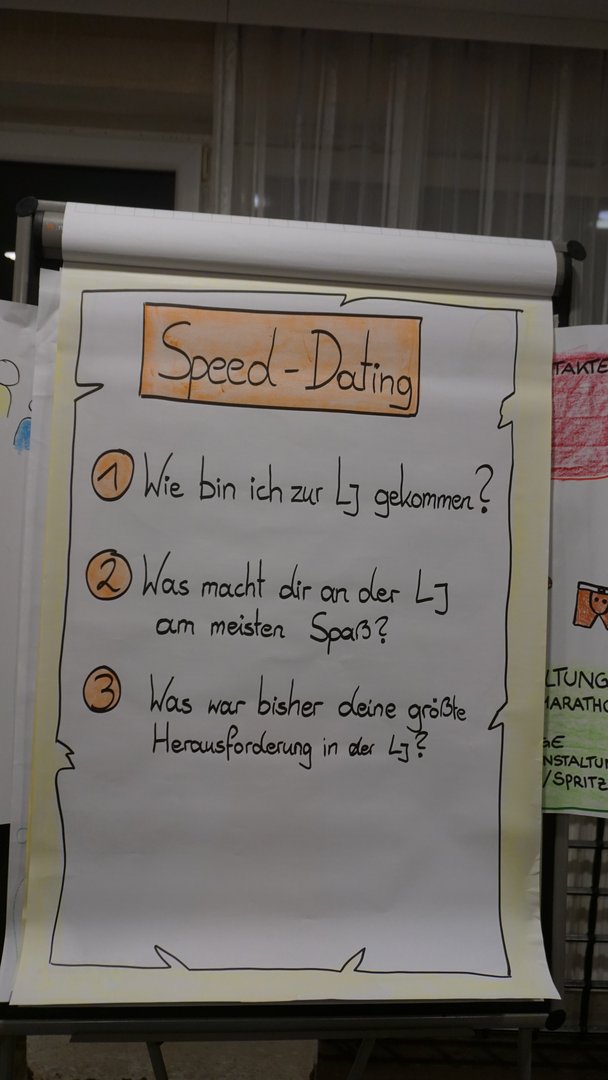 Speed-Dating
1 Wie bin ich zur LJ gekommen?
2 Was macht dir an der LJ
am meisten Spaß?
3 Was war bisher deine größte
Herausforderung in der LJ?
TAKTE
LTUNG
MARATHO
GE
NSTALTUN
/SPRITZ